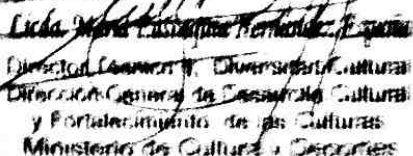 Licda. María Eustaquia Hernández España
Director Técnico II, Diversidad Cultural
Dirección General de Desarrollo Cultural
y Fortalecimiento de las Culturas
Ministerio de Cultura y Deportes